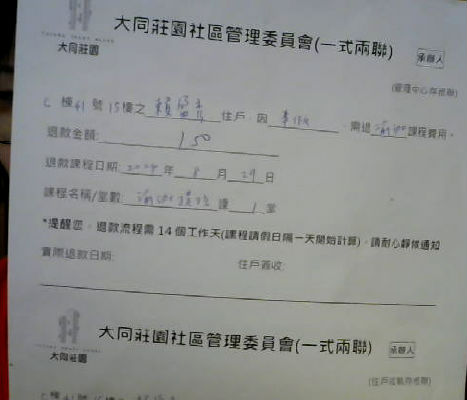 大同莊園社區管理委員會(一式兩聯)
大同莊園
承辦人
(管理中心存根聯)
C 棟 41 號 15 樓之 賴 住戶，因 事假 需退 瑜珈 課程費用。
退款金額: 150
退款課程日期: 2024 年 8 月 29 日
課程名稱/堂數: 瑜珈 課 1 堂
*提醒您，退款流程需 14 個工作天(課程請假日隔一天開始計算)，請耐心靜候通知
實際退款日期:
住戶簽收:
大同莊園社區管理委員會(一式兩聯)
大同莊園
承辦人